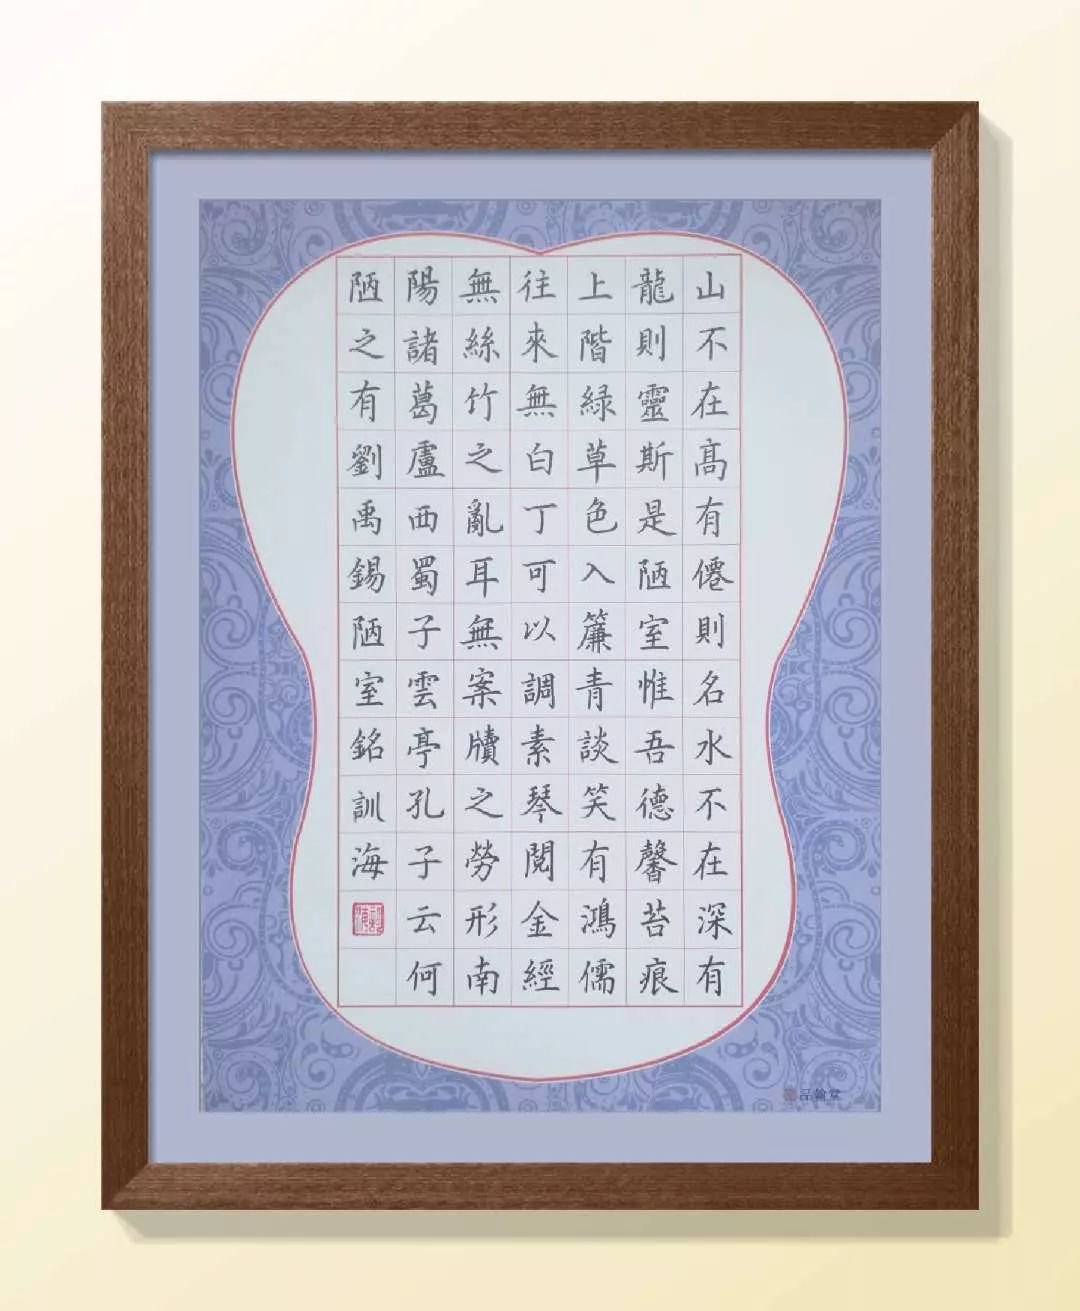 山不在高有僊則名水不在深有
龍則靈斯是陋室惟吾德馨苔痕
上階緑草色入簾青談笑有鴻儒
往來無白丁可以調素琴閱金經
無絲竹之亂耳無案牘之勞形南
陽諸葛盧西蜀子雲亭孔子云何
陋之有劉禹錫陋室銘訓海
品翰堂